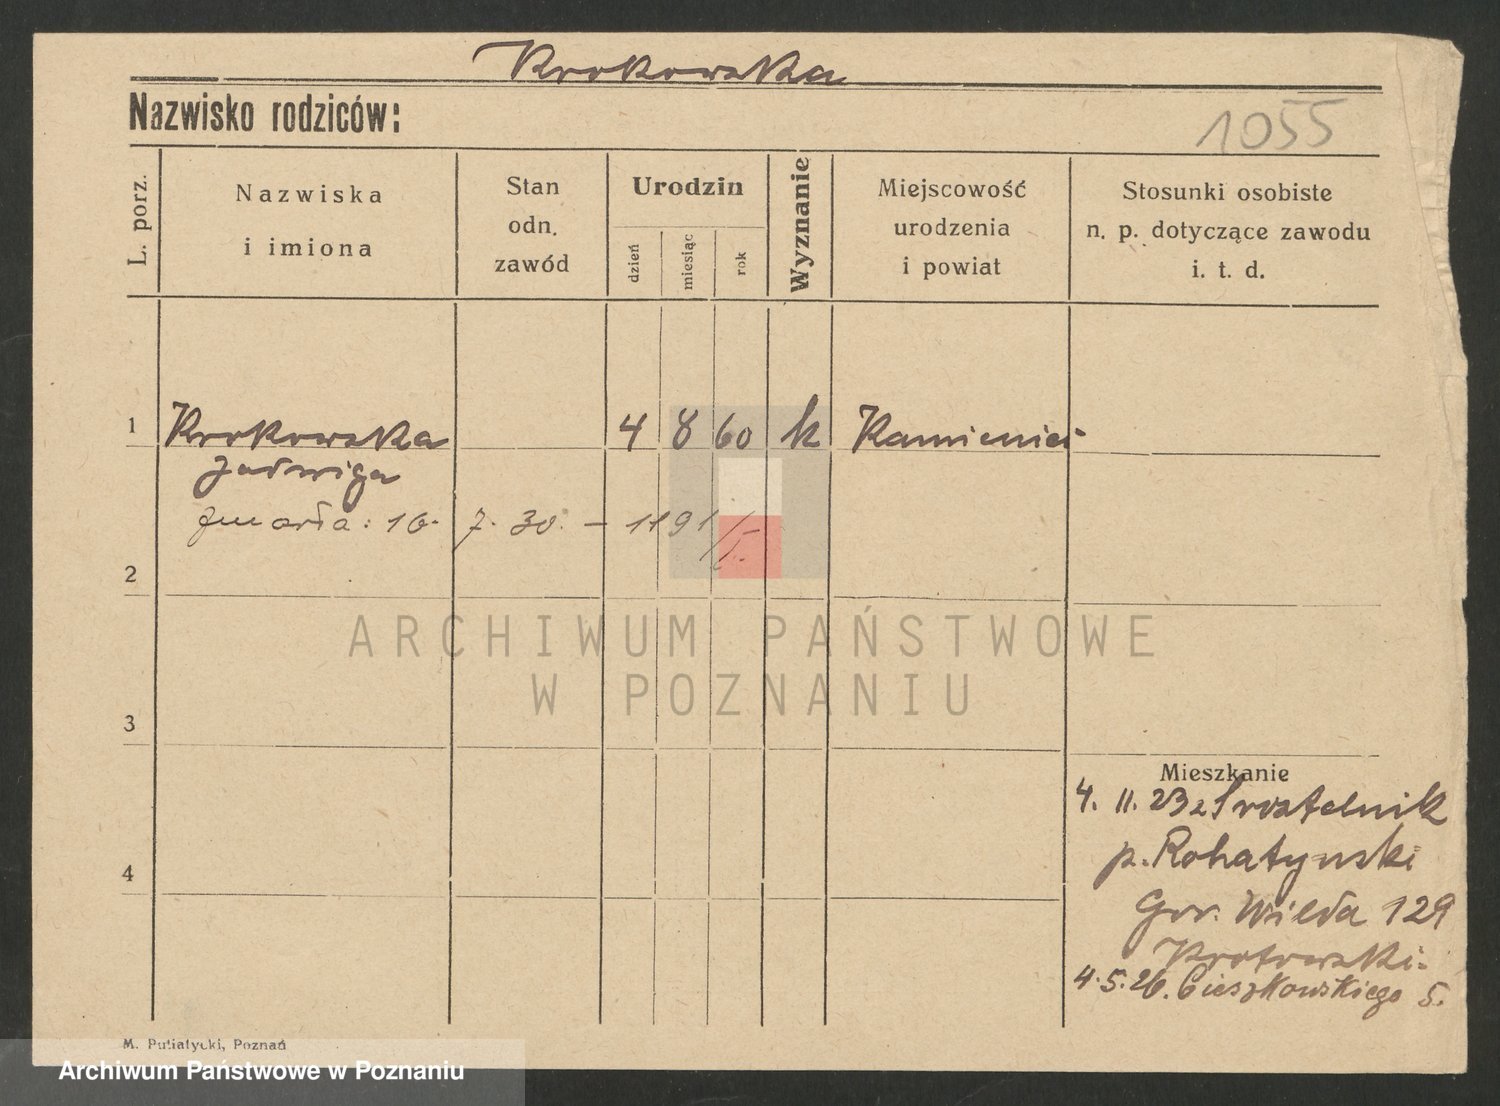 Krokowska
Nazwisko rodziców:
1055
L. porz.
Nazwiska
i imiona
Stan
odn.
zawód
Urodzin
dzień
miesiąc
rok
Wyznanie
Miejscowość
urodzenia
i powiat
Stosunki osobiste
n. p. dotyczące zawodu
i. t. d.
1 Krokowska 4 8 60 k Kamieniec
Jadwiga
zmarła: 16. 7. 30. – 1191/I.
2
3
4
ARCHIWUM PAŃSTWOWE
W POZNANIU
Mieszkanie
4. 11. 23 z
p. Rohatynski
Gór. Wilda 129
4. 5. 26. Cieszkowskiego 5.
M. Putiatycki, Poznań
Archiwum Państwowe w Poznaniu